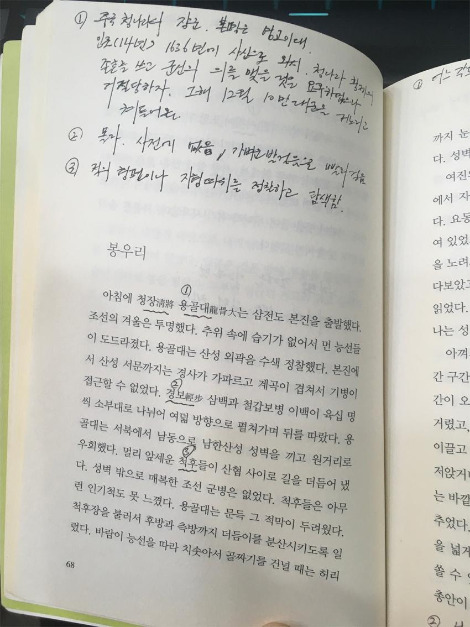 ① 중국 청나라 장군. 본명은 영고이대.
인조(14년) 1636년에 사신으로 와서, 청나라 황제의
존호를 쓰고 군신의 의를 맺을 것을 요구하였으나
거절당하자. 그해 12월 10만 대군을 거느리고
쳐들어온
② 사전에 없음, 가벼운
③ 적의 형편이나 지형 따위를 정찰하고 탐색함.
봉우리
①
아침에 청장淸將 용골대龍骨大는 삼전도 본진을 출발했다.
조선의 겨울은 투명했다. 추위 속에 습기가 없어서 먼 능선들
이 도드라졌다. 용골대는 산성 외곽을 수색 정찰했다. 본진에
서 산성 서문까지는 경사가 가파르고 계곡이 겹쳐서 기병이
②
접근할 수 없었다. 경보輕步 삼백과 철갑보병 이백이 육십 명
씩 소부대로 나뉘어 여덟 방향으로 펼쳐가며 뒤를 따랐다. 용
골대는 서북에서 남동으로 남한산성 성벽을 끼고 원거리로
③
우회했다. 멀리 앞세운 척후들이 산협 사이로 길을 더듬어 냈
다. 성벽 밖으로 매복한 조선 군병은 없었다. 척후들은 아무
런 인기척도 못 느꼈다. 용골대는 문득 그 적막이 두려웠다.
척후장을 불러서 후방과 측방까지 더듬이를 분산시키도록 일
렀다. 바람이 능선을 따라 치솟아서 골짜기를 건널 때는 허리
68
① 어느
까지 눈
다. 성벽
여진
에서 자
다. 요동
여 있었
을 노려
다보았고
읽었다.
나는 성
아껴
간 구간
간이 오
거렸고,
이끌고
저앉거
는 바깥
추었다.
을 넓게
쏠 수
총안이
②